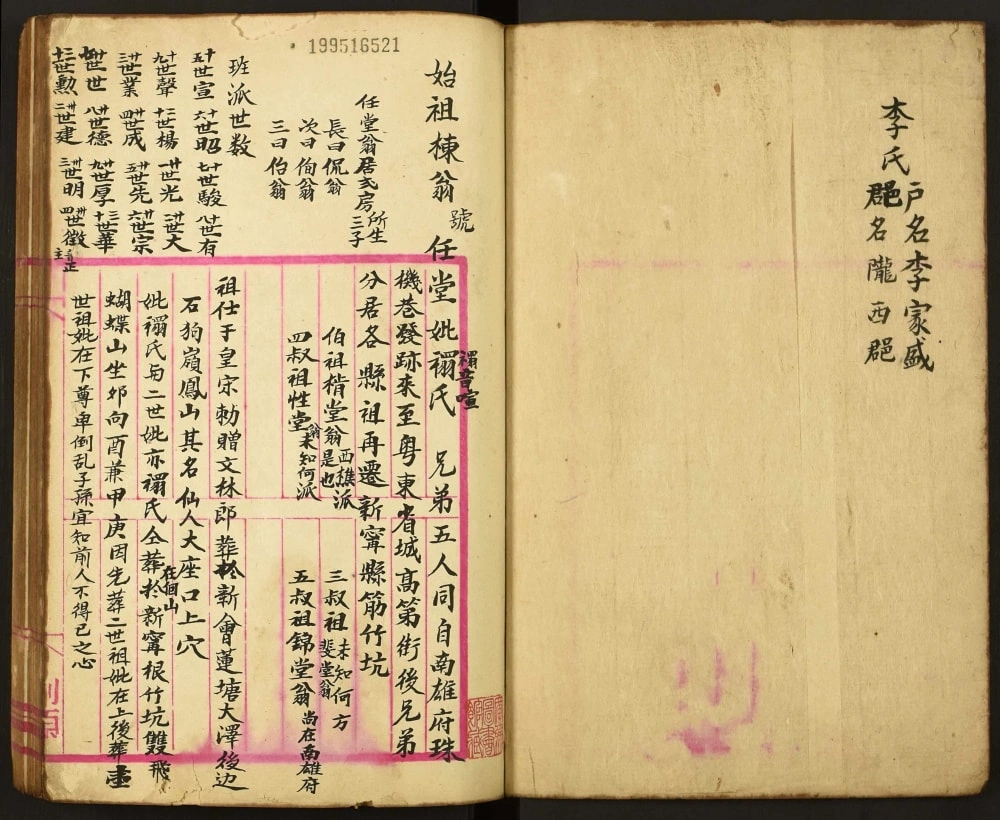 李氏戶名李家盛
郡名隴西郡
199516521
始祖棟翁號任堂妣禤氏 兄弟五人同自南雄府珠
禤音喧
機巷發跡來至粤東省城高第街後兄弟
分居各縣祖再遷新寧縣筋竹坑
任堂翁居弍房所生三子
長曰侃翁
次曰侚翁
三曰佁翁
伯祖楷堂翁西樵派是也
三叔祖斐堂翁未知何方
四叔祖性堂翁未知何派
五叔祖錦堂翁尚在南雄府
班派世数
祖仕于皇宗勅贈文林郎葬於新會蓮塘大澤後边
石狗嶺鳳山其名仙人大座口上穴
妣禤氏与二世妣亦禤氏仝葬於新寧根竹坑雙飛
在佪山
蝴蝶山坐卯向酉兼甲庚因先葬二世祖妣在上後葬壹
世祖妣在下尊卑倒乱子孫宜知前人不得已之心
十五世宣 十六世昭 十七世駿 十八世有
十九世聲 廿世楊 廿一世光 廿二世大
廿三世業 廿四世成 廿五世先 廿六世宗
廿七世世 廿八世德 廿九世厚 三十世華
三十一世勲 卅二世建 卅三世明 卅四世徵